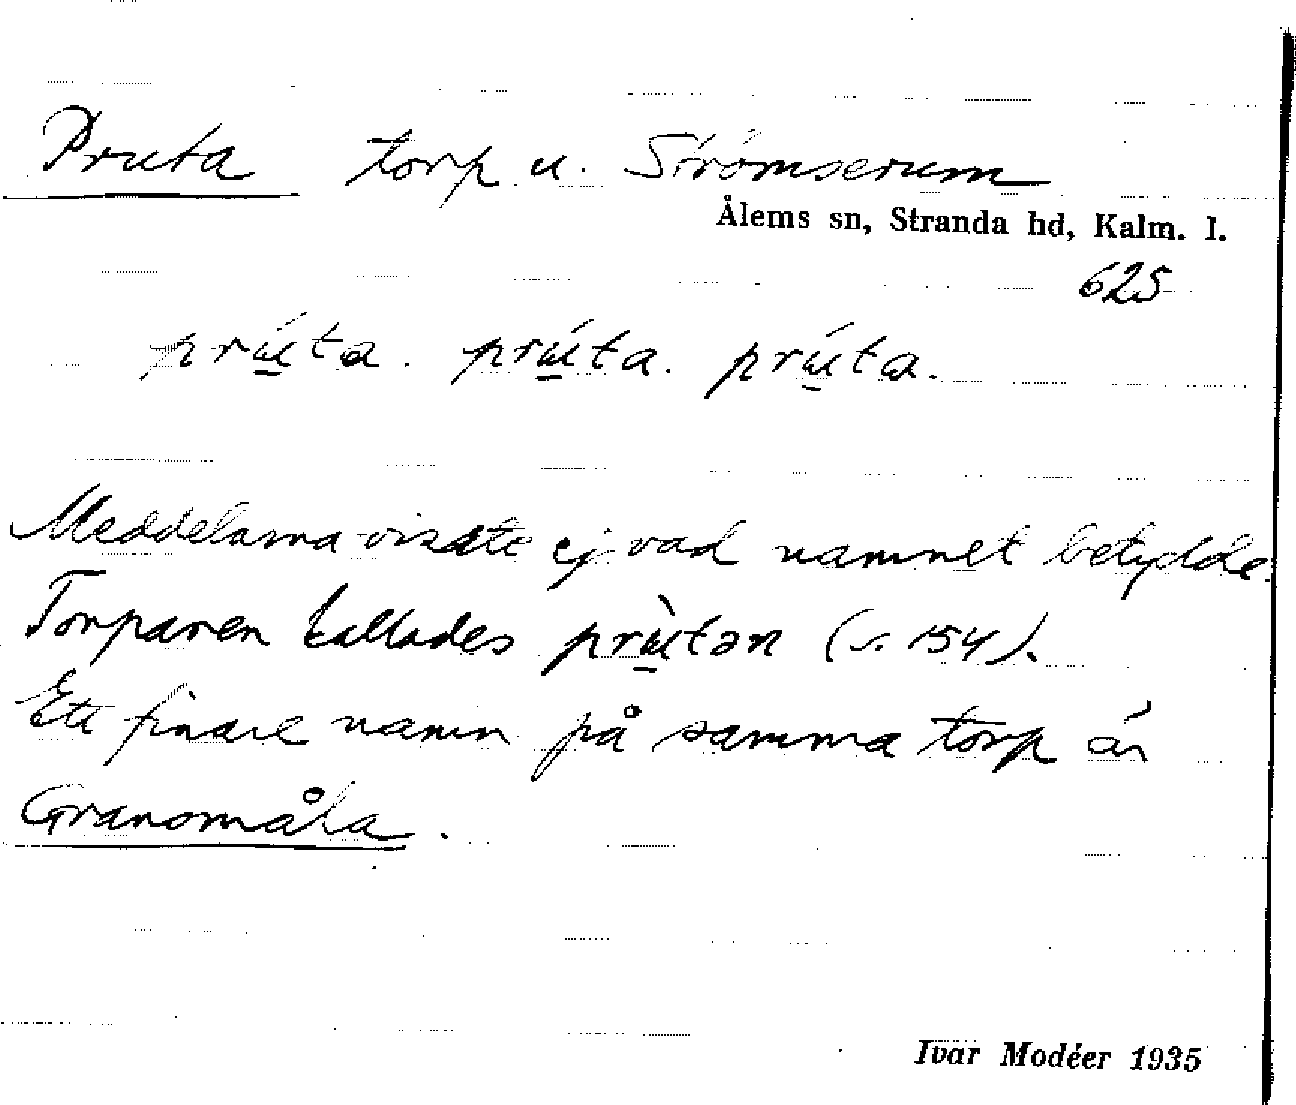 Pruta torp u. Strömserum
Ålems sn, Stranda hd, Kalm. l.
625
prú̱ta. prú̱ta. prú̱ta.
Meddelarna visste ej vad namnet betydde.
Torparen kallades prù̱tən (s. 154).
Ett finare namn på samma torp är
Granomåla.
Ivar Modéer 1935